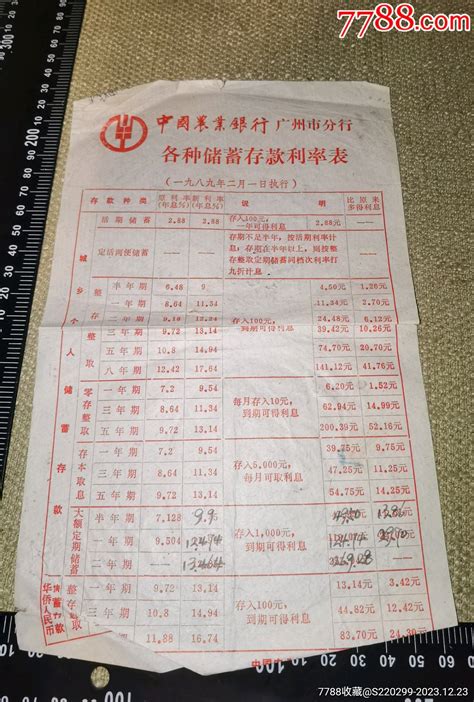 7788.com
中國農業銀行 广州市分行
各种储蓄存款利率表
（一九八九年二月一日执行）
存款种类 原利率(年息%) 新利率(年息%) 说 明 比原来多得利息
城乡个人储蓄存款
活期储蓄 2.88 2.88 存入100元，一年可得利息 2.88元
定活两便储蓄 存期不足半年，按活期利率计息；存期在半年以上，则按整存整取定期储蓄同档次利率打九折计息
整存整取
半年期 6.48 9 4.50元 1.26元
一年期 8.64 11.34 11.34元 2.70元
二年期 9.18 12.24 存入100元，到期可得利息 24.48元 6.12元
三年期 9.72 13.14 39.42元 10.26元
五年期 10.8 14.94 74.70元 20.70元
八年期 12.42 17.64 141.12元 41.76元
零存整取
一年期 7.2 9.54 6.20元 1.52元
三年期 8.64 11.34 每月存入10元，到期可得利息 62.94元 14.99元
五年期 9.72 13.14 200.39元 52.16元
存本取息
一年期 7.2 9.54 39.75元 9.75元
三年期 8.64 11.34 存入5,000元，每月可取利息 47.25元 11.25元
五年期 9.72 13.14 54.75元 14.25元
大额定期储蓄
半年期 7.128 9.9
一年期 9.504 12.474 存入1,000元，到期可得利息
二年期 13.464
华侨人民币储蓄存款
整存整取
一年期 9.72 13.14 13.14元 3.42元
三年期 10.8 14.94 存入100元，到期可得利息 44.82元 12.42元
五年期 11.88 16.74 83.70元 24.30元
7788收藏@S220299-2023.12.23